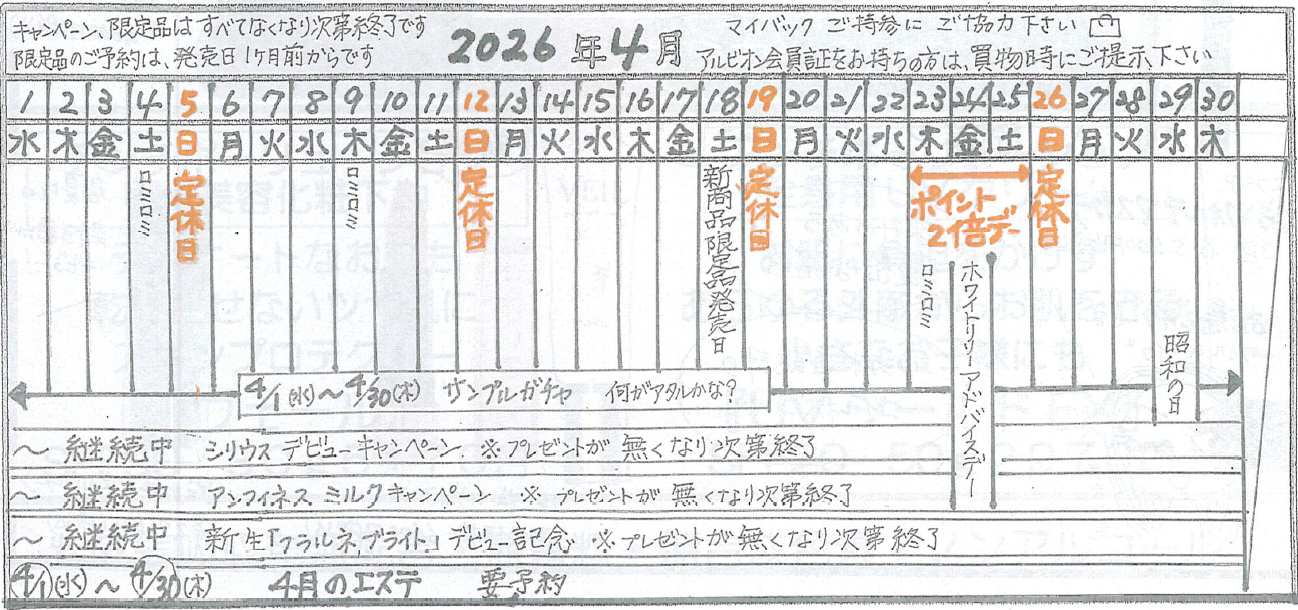 キャンペーン、限定品は すべてなくなり次第終了です
限定品のご予約は、発売日1ヶ月前からです
2026年4月
マイバック ご持参に ご協力下さい
アルビオン会員証をお持ちの方は、買物時にご提示、下さい
1 2 3 4 5 6 7 8 9 10 11 12 13 14 15 16 17 18 19 20 21 22 23 24 25 26 27 28 29 30
水 木 金 土 日 月 火 水 木 金 土 日 月 火 水 木 金 土 日 月 火 水 木 金 土 日 月 火 水 木
ロミロミ
定休日
ロミロミ
定休日
新商品限定品発売日
定休日
ポイント
2倍デー
ロミロミ
ホワイトリー アドバイスデー
定休日
昭和の日
4/1(水)〜4/30(木) サンプルガチャ 何がアタルかな?
〜 継続中 シリウスデビューキャンペーン ※プレゼントが無くなり次第終了
〜 継続中 アンフィネスミルクキャンペーン ※プレゼントが無くなり次第終了
〜 継続中 新生「フラルネ,ブライト」デビュー記念 ※プレゼントが無くなり次第終了
4/1(水)〜4/30(木) 4月のエステ 要予約